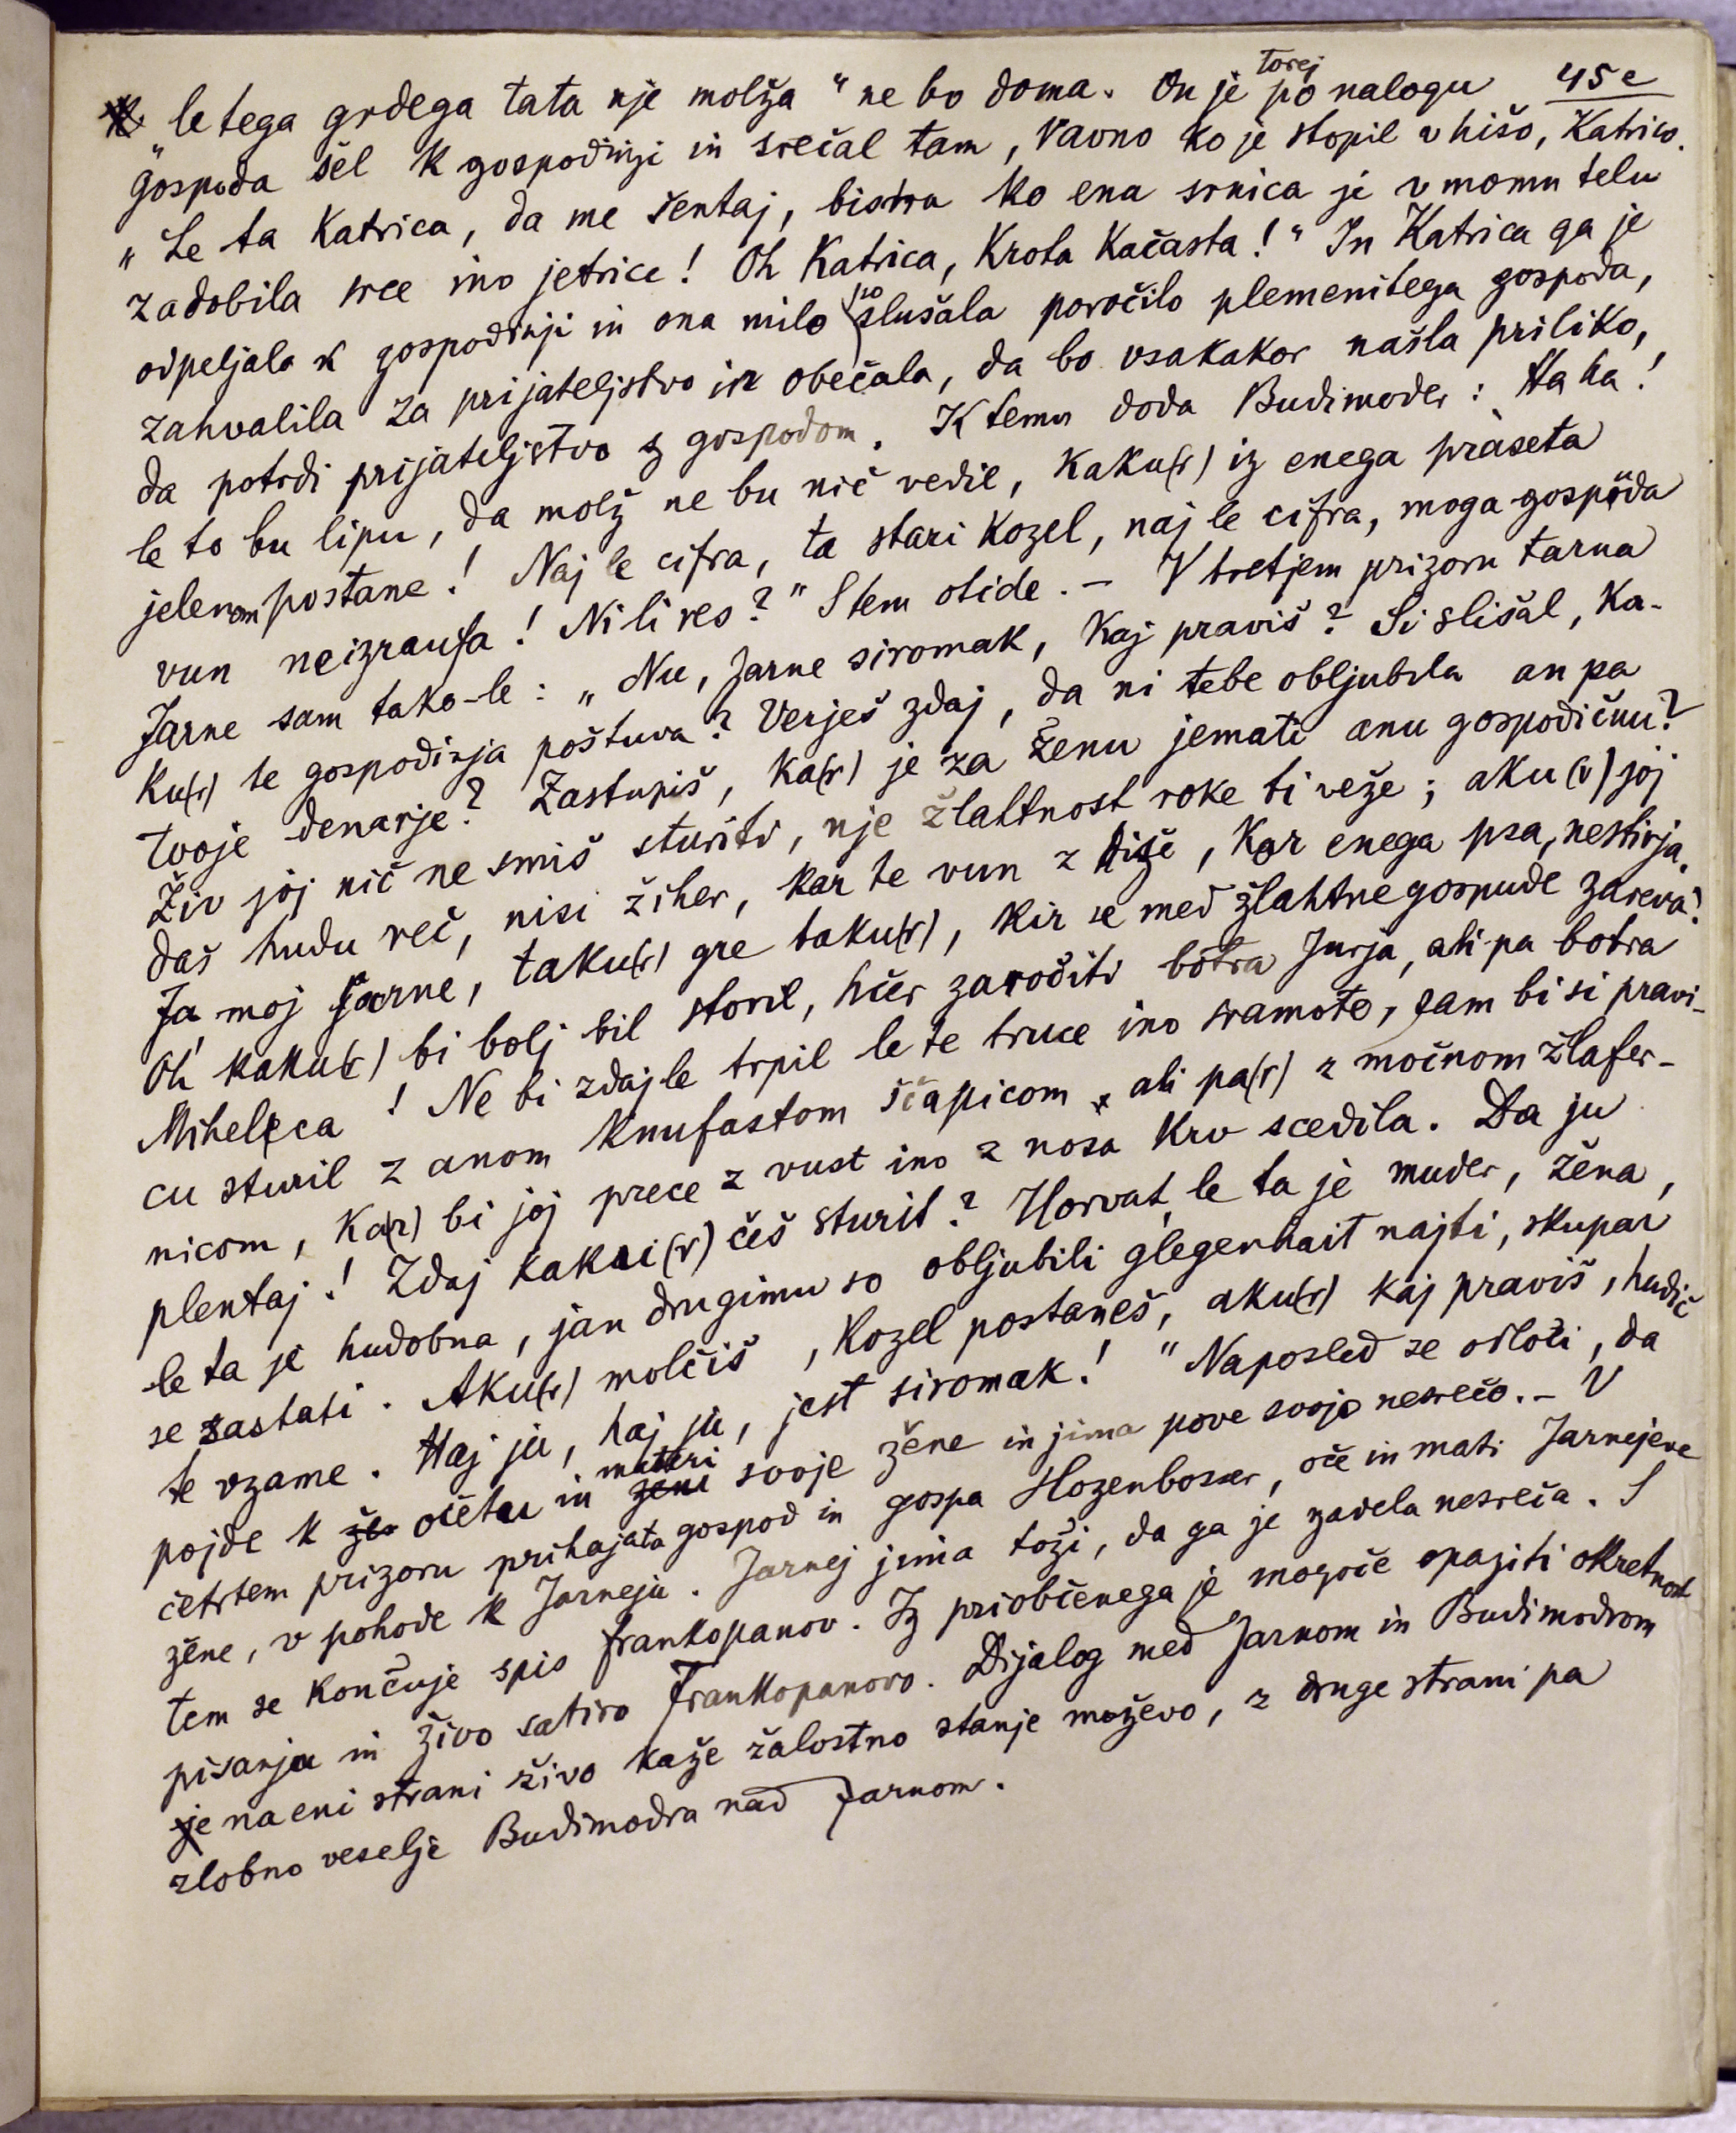 45e
„le tega grdega tata nje molža" ne bo doma. On je torej po nalogu
gospoda šel k gospodinji in srečal tam, ravno ko je stopil v hišo, Katrico.
„Le ta Katrica, da me šentaj, bistra ko ena srnica je v momu telu
zadobila srce ino jetrice! Oh Katrica, Krota Kačasta!" In Katrica ga je
odpeljala k gospodinji in ona milo poslušala poročilo plemenitega gospoda,
zahvalila za prijateljstvo in obečala, da bo vsakakor našla priliko,
da potrdi prijateljstvo z gospodom. K temu doda Budimoder: Ha ha!
le to bu lipu, da molž ne bu nič vedil, kaku(r) iz enega praseta
jelenom postane! Naj le cifra, ta stari kozel, naj le cifra, moga gospuda
vun neizraufa! Ni li res?" S tem otide. – V tretjem prizoru tarna
Jarne sam tako-le: „Nu, Jarne siromak, kaj praviš? Si slišal, ka-
ku(r) te gospodinja poštuva? Verješ zdaj, da ni tebe obljubila an pa
tvoje denarje? Zastupiš, ka(r) je za ženu jemati anu gospodičnu?
Živ joj nič ne smiš sturiti, nje žlahtnost roke ti veže; aku(r) joj
daš hudu reč, nisi žiher, kar te vun z hiše, kor enega psa, nestirja.
Ja moj Jarne, taku(r) gre taku(r), kir se med žlahtne gospude zareva!
Oh kaku(r) bi bolj bil storil, hčer zaročiti botra Jurja, ali pa botra
Mihelca! Ne bi zdaj le trpil le te truce ino sramote, sam bi si pravi-
cu sturil z anom knufastom ščapicom, ali pa(r) z močnom žlafer-
nicom, ka(r) bi joj prece z vust ino z nosa krv scedila. Da ju
plentaj! Zdaj kaku(r) češ sturit? Horvat, le ta je muder, žena,
le ta je hudobna, jan drugimu so obljubili glegenhait najti, skupar
se zastati. Aku(r) molčiš, kozel postaneš, aku(r) kaj praviš, hudič
te vzame. Haj ju, haj ju, jest siromak!" Naposled se odloči, da
pojde k očetu in materi svoje žene in jima pove svojo nesrečo. – V
četrtem prizoru prihajata gospod in gospa Hozenboser, oče in mati Jarnejeve
žene, v pohode k Jarneju. Jarnej jima toži, da ga je zadela nesreča. S
tem se končuje spis frankopanov. Iz priobčenega je mogoče opaziti okretnost
pisanja in živo satiro Frankopanovo. Dijalog med Jarnom in Budimodrom
na eni strani živo kaže žalostno stanje moževo, z druge strani pa
zlobno veselje Budimodra nad Jarnom.